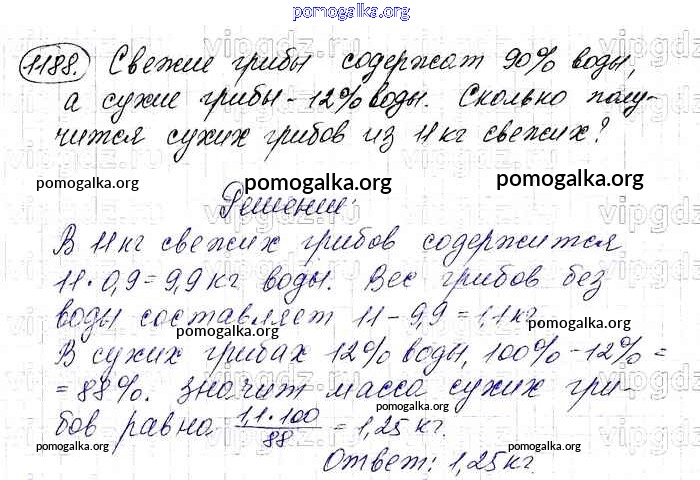 pomogalka.org
1188. Свежие грибы содержат 90% воды,
а сухие грибы - 12% воды. Сколько полу-
чится сухих грибов из 11 кг свежих?
pomogalka.org pomogalka.org pomogalka.org
Решение:
В 11 кг свежих грибов содержится
11 · 0,9 = 9,9 кг воды. Вес грибов без
воды составляет 11 - 9,9 = 1,1 кг
pomogalka.org pomogalka.org
В сухих грибах 12% воды, 100% - 12% =
= 88%. Значит масса сухих гри-
бов равна 1,1 · 100 / 88 = 1,25 кг.
pomogalka.org
Ответ: 1,25 кг.
pomogalka.org pomogalka.org